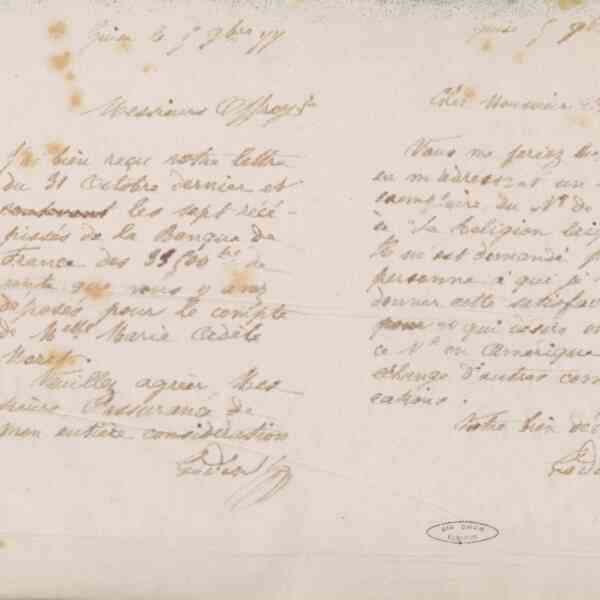 Guise le 5 9bre 77
Messieurs Offroy &
J'ai bien reçu votre lettre
du 31 Octobre dernier et
contenant les sept récé-
pissés de la Banque de
France des 35,500 de
rente que vous y avez
déposés pour le compte
de Melle Marie Adèle
Moret.
Veuillez agréer, Mes-
sieurs l'assurance de
mon entière considération
Godin
Guise 5 9b
Cher Monsieur
Vous me feriez
en m'adressant un
exemplaire du No de
de "la Religion
Il m'est demandé
personne à qui je
donner cette satisfac
pour qui désire
ce No en Amérique
échange d'autres com
cations.
Votre bien dé
Godin